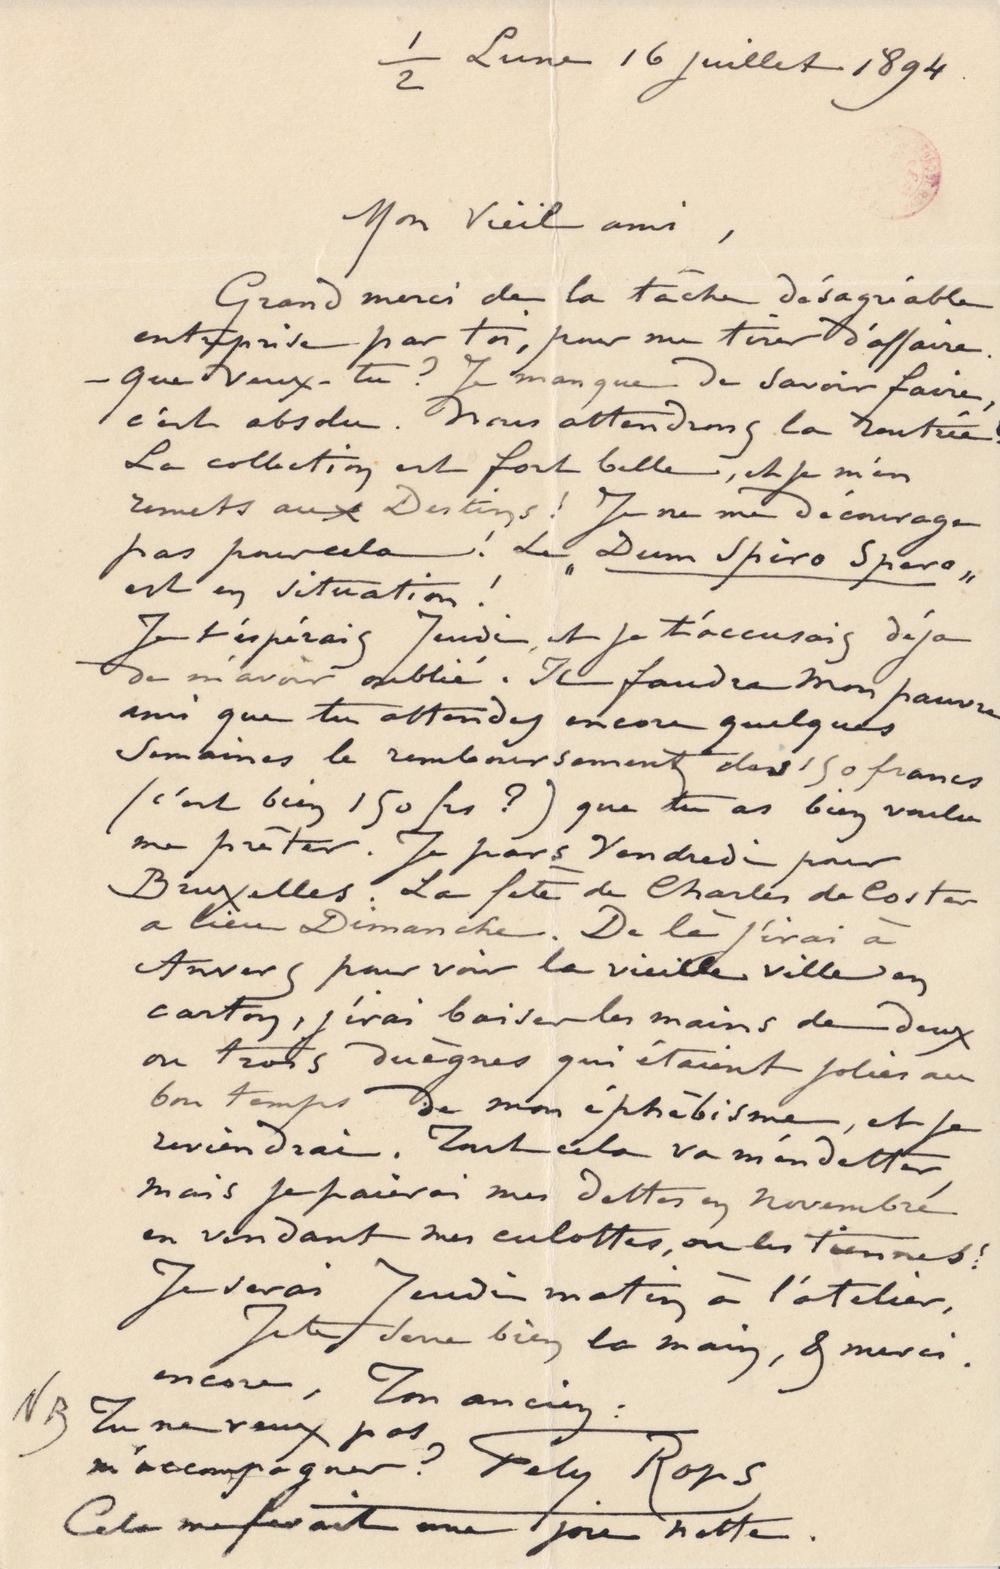 1/2 Lune 16 juillet 1894.
Mon Vieil ami,
Grand merci de la tâche désagréable
entreprise par toi, pour me tirer d'affaire.
– Que veux-tu? Je manque de savoir faire,
c'est absolu. Nous attendrons la rentrée!
La collection est fort belle, et je m'en
remets aux Destins! Je ne me décourage
pas pour cela! Le „Dum Spiro Spero„
est en situation!
Je t'éspérais Jeudi, et je t'accusais déja
de m'avoir oublié. Il faudra Mon pauvre
ami que tu attendes encore quelques
Semaines le remboursement des 150 francs
(c'est bien 150 frs?) que tu as bien voulu
me prêter. Je pars Vendredi pour
Bruxelles. La fête de Charles de Coster
a lieu Dimanche. De là j'irai à
Anvers pour voir la vieille ville en
carton, j'irai baiser les mains de deux
ou trois duègnes qui étaient jolies au
bon temps de mon éphébisme, et je
reviendrai. Tout cela va m'endetter,
mais je paierai mes dettes en novembre
en vendant mes culottes, ou les tiennes!
Je serai Jeudi matin à l'atelier,
Je te serre bien la main, & merci.
encore, Ton ancien:
NB Tu ne veux pas
m'accompagner? Fély Rops
Cela me ferait une joie nette.